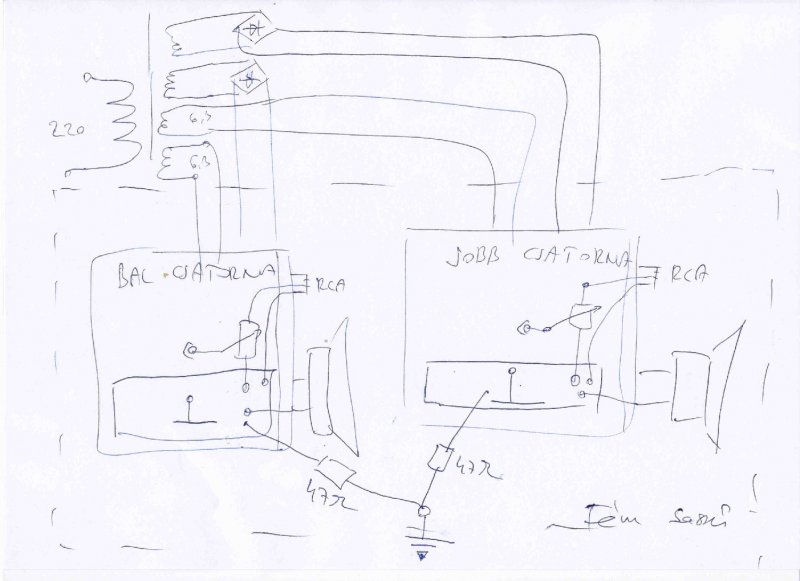 220
6,3
6,3
BAL CSATORNA
RCA
JOBB CSATORNA
RCA
47Ω
47Ω
Fém sasszi